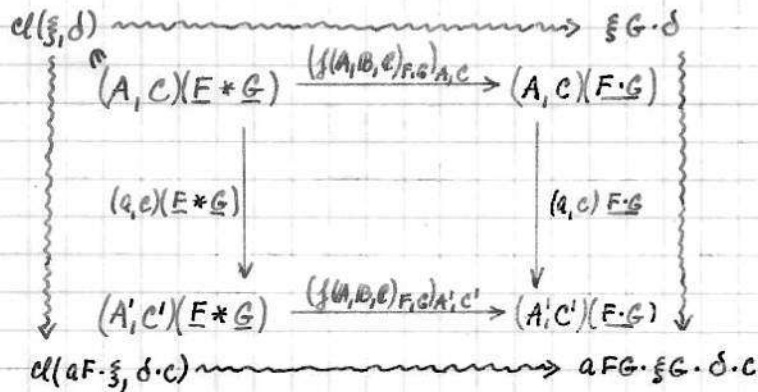 cl(ξ, δ) ξG·δ
(A, C)(F * G) (f(A, B, C)F,G)A,C (A, C)(F·G)
(a, c)(F * G) (a, c) F·G
(A', C')(F * G) (f(A, B, C)F,G)A',C' (A', C')(F·G)
cl(aF·ξ, δ·c) aFG·ξG·δ·c